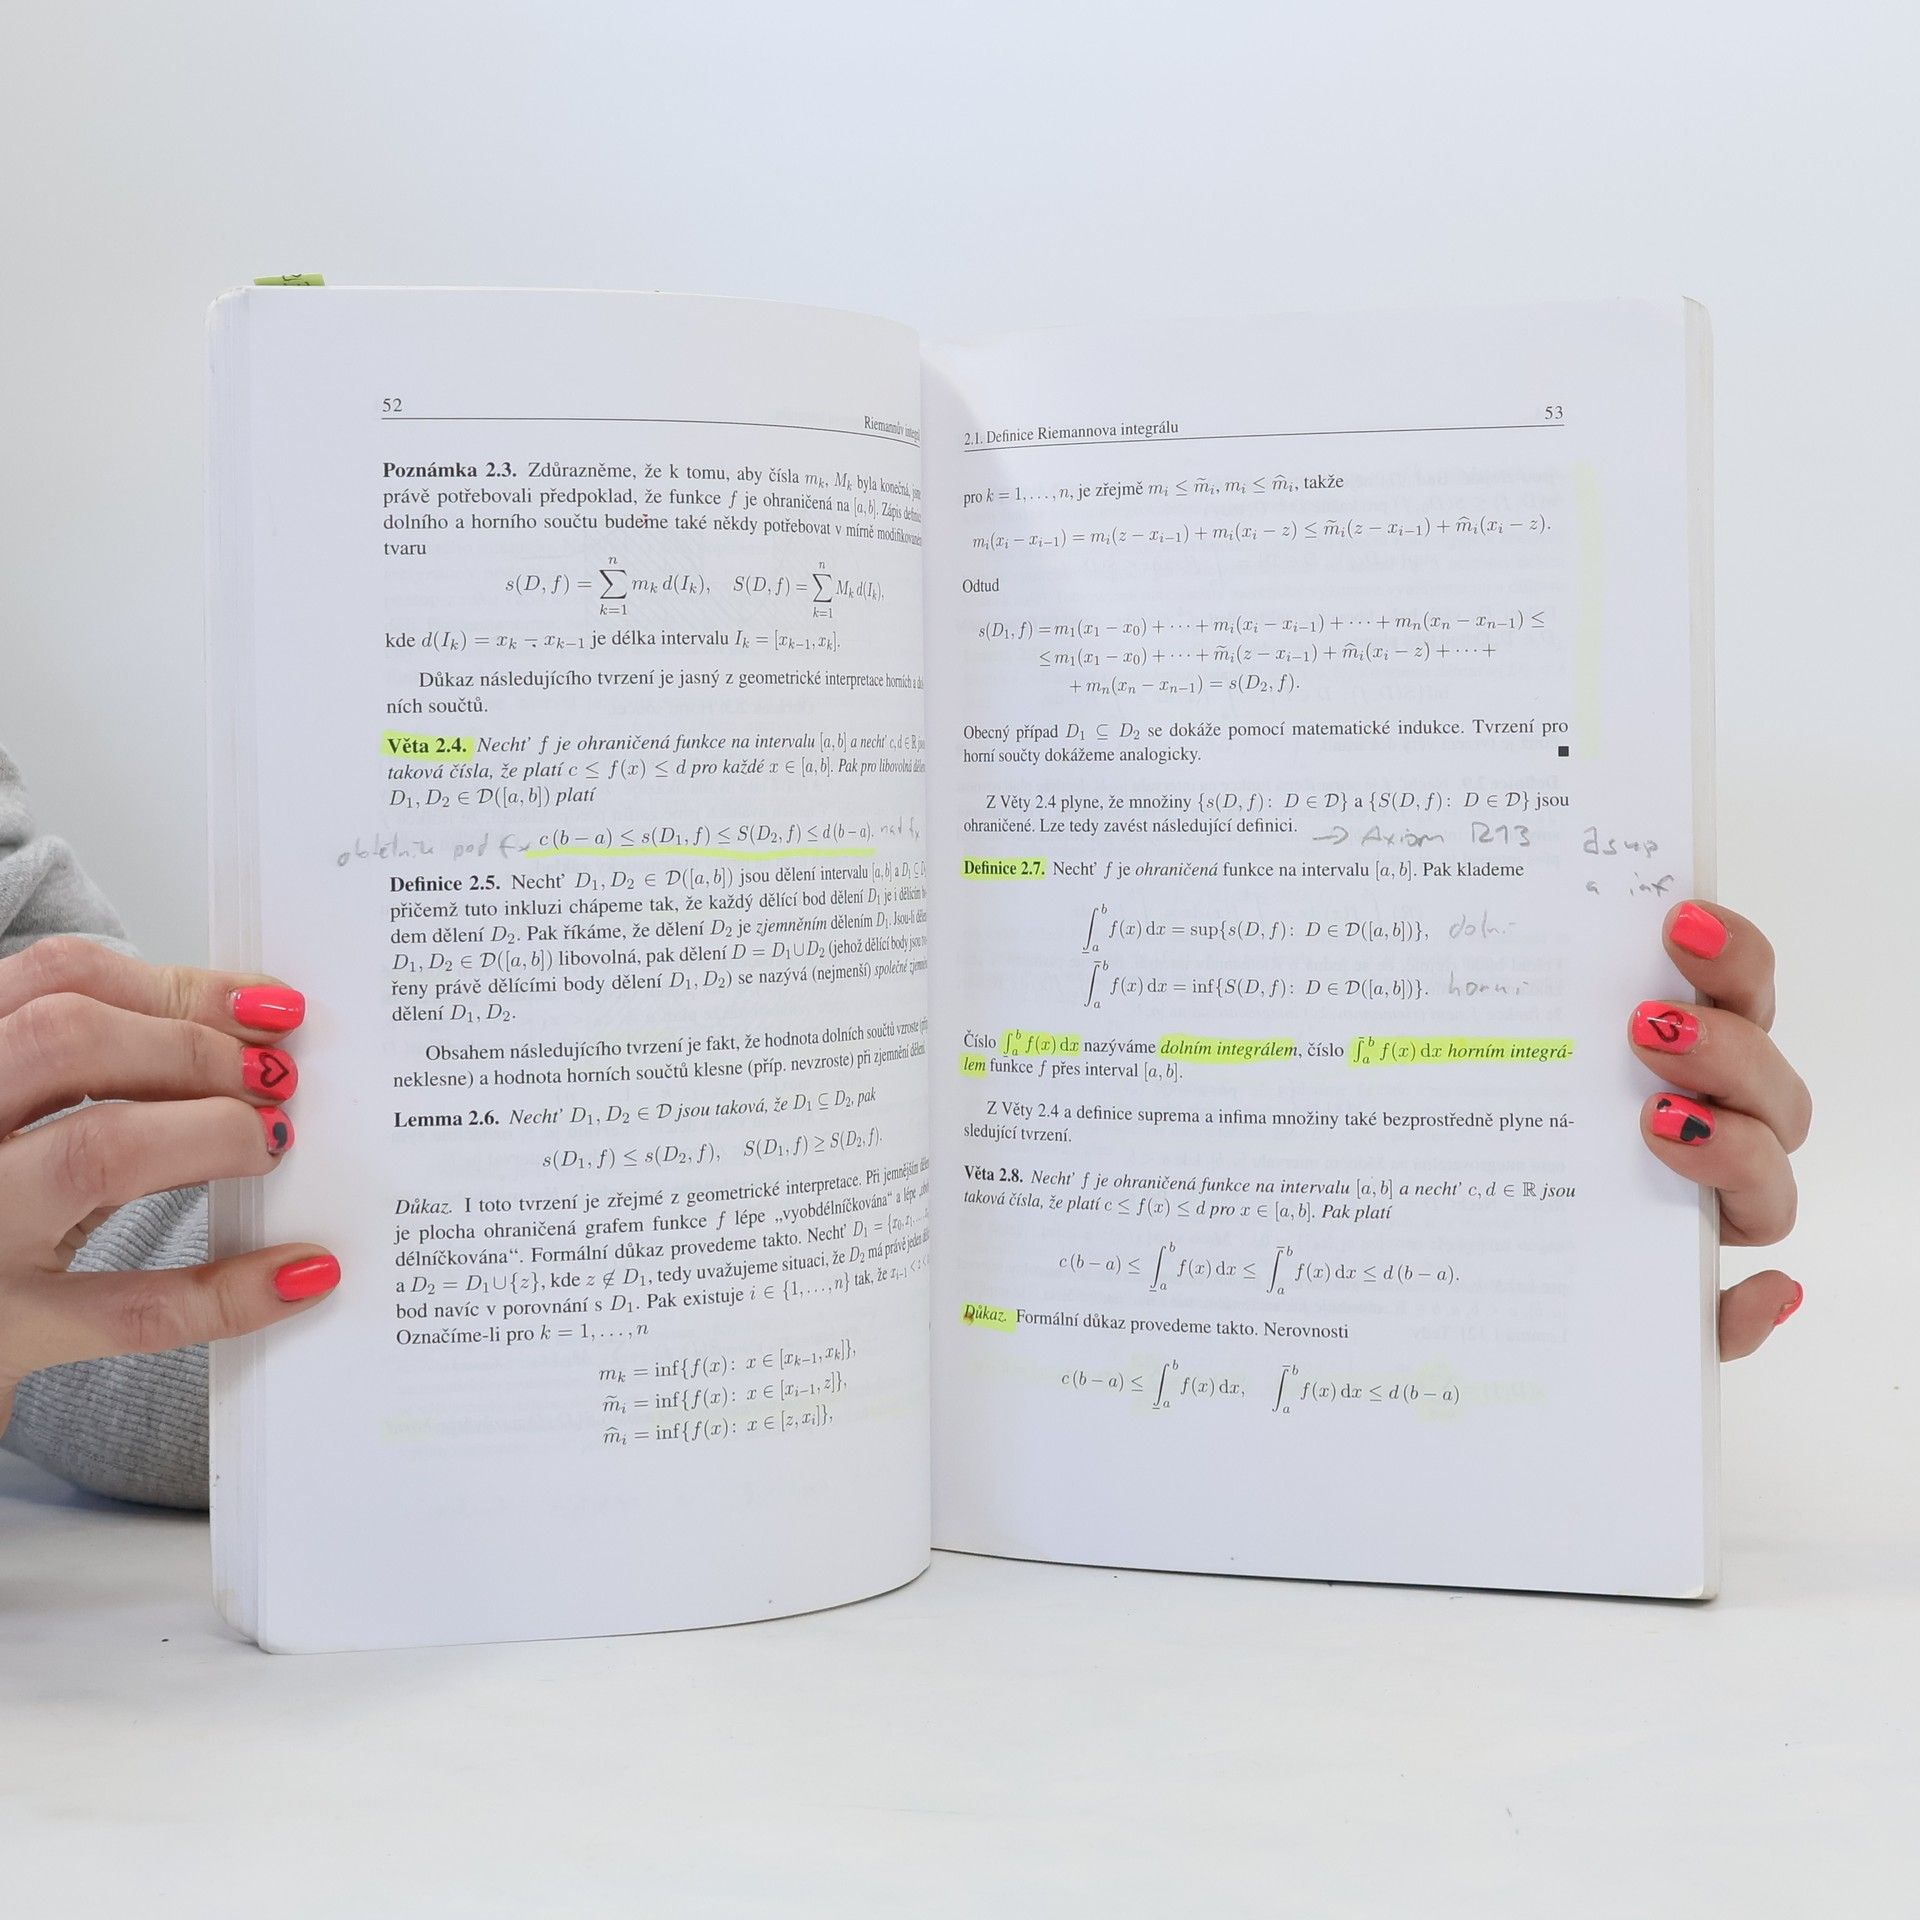 52
Riemannův
Poznámka 2.3. Zdůrazněme, že k tomu, aby čísla m_k, M_k byla konečná,
právě potřebovali předpoklad, že funkce f je ohraničená na [a, b]. Zápis
dolního a horního součtu budeme také někdy potřebovat v mírně
tvaru
s(D, f) = ∑_{k=1}^{n} m_k d(I_k), S(D, f) = ∑_{k=1}^{n} M_k d(I_k),
kde d(I_k) = x_k − x_{k−1} je délka intervalu I_k = [x_{k−1}, x_k].
Důkaz následujícího tvrzení je jasný z geometrické interpretace horních a
ních součtů.
Věta 2.4. Nechť f je ohraničená funkce na intervalu [a, b] a nechť c, d ∈ ℝ
taková čísla, že platí c ≤ f(x) ≤ d pro každé x ∈ [a, b]. Pak pro libovolná
D₁, D₂ ∈ 𝒟([a, b]) platí
pod fx c (b − a) ≤ s(D₁, f) ≤ S(D₂, f) ≤ d (b − a). nad fx
Definice 2.5. Nechť D₁, D₂ ∈ 𝒟([a, b]) jsou dělení intervalu [a, b] a D₁ ⊆
přičemž tuto inkluzi chápeme tak, že každý dělící bod dělení D₁ je i dělícím
dem dělení D₂. Pak říkáme, že dělení D₂ je zjemněním dělením D₁. Jsou-li
D₁, D₂ ∈ 𝒟([a, b]) libovolná, pak dělení D = D₁ ∪ D₂ (jehož dělící body jsou
řeny právě dělícími body dělení D₁, D₂) se nazývá (nejmenší) společné
dělení D₁, D₂.
Obsahem následujícího tvrzení je fakt, že hodnota dolních součtů vzroste
neklesne) a hodnota horních součtů klesne (příp. nevzroste) při zjemnění
Lemma 2.6. Nechť D₁, D₂ ∈ 𝒟 jsou taková, že D₁ ⊆ D₂, pak
s(D₁, f) ≤ s(D₂, f), S(D₁, f) ≥ S(D₂, f).
Důkaz. I toto tvrzení je zřejmé z geometrické interpretace. Při jemnějším
je plocha ohraničená grafem funkce f lépe „vyobdélníčkována“ a lépe
délníčkována“. Formální důkaz provedeme takto. Nechť D₁ = {x₀, x₁,
a D₂ = D₁ ∪ {z}, kde z ∉ D₁, tedy uvažujeme situaci, že D₂ má právě jeden
bod navíc v porovnání s D₁. Pak existuje i ∈ {1, . . . , n} tak, že x_{i−1} < z
Označíme-li pro k = 1, . . . , n
m_k = inf{f(x) : x ∈ [x_{k−1}, x_k]},
m̃_i = inf{f(x) : x ∈ [x_{i−1}, z]},
m̂_i = inf{f(x) : x ∈ [z, x_i]},
2.1. Definice Riemannova integrálu
53
pro k = 1, . . . , n, je zřejmě m_i ≤ m̃_i, m_i ≤ m̂_i, takže
m_i(x_i − x_{i−1}) = m_i(z − x_{i−1}) + m_i(x_i − z) ≤ m̃_i(z − x_{i−1}) + m̂_i(x_i − z).
Odtud
s(D₁, f) = m₁(x₁ − x₀) + · · · + m_i(x_i − x_{i−1}) + · · · + m_n(x_n − x_{n−1}) ≤
≤ m₁(x₁ − x₀) + · · · + m̃_i(z − x_{i−1}) + m̂_i(x_i − z) + · · · +
+ m_n(x_n − x_{n−1}) = s(D₂, f).
Obecný případ D₁ ⊆ D₂ se dokáže pomocí matematické indukce. Tvrzení pro
horní součty dokážeme analogicky. ■
Z Věty 2.4 plyne, že množiny {s(D, f) : D ∈ 𝒟} a {S(D, f) : D ∈ 𝒟} jsou
ohraničené. Lze tedy zavést následující definici.
→ Axiom R13 ∃ sup
a inf
Definice 2.7. Nechť f je ohraničená funkce na intervalu [a, b]. Pak klademe
∫̲_a^b f(x) dx = sup{s(D, f) : D ∈ 𝒟([a, b])}, dolní
∫̅_a^b f(x) dx = inf{S(D, f) : D ∈ 𝒟([a, b])}. horní
Číslo ∫̲_a^b f(x) dx nazýváme dolním integrálem, číslo ∫̅_a^b f(x) dx horním integrá-
lem funkce f přes interval [a, b].
Z Věty 2.4 a definice suprema a infima množiny také bezprostředně plyne ná-
sledující tvrzení.
Věta 2.8. Nechť f je ohraničená funkce na intervalu [a, b] a nechť c, d ∈ ℝ jsou
taková čísla, že platí c ≤ f(x) ≤ d pro x ∈ [a, b]. Pak platí
c (b − a) ≤ ∫̲_a^b f(x) dx ≤ ∫̅_a^b f(x) dx ≤ d (b − a).
Důkaz. Formální důkaz provedeme takto. Nerovnosti
c (b − a) ≤ ∫̲_a^b f(x) dx, ∫̅_a^b f(x) dx ≤ d (b − a)